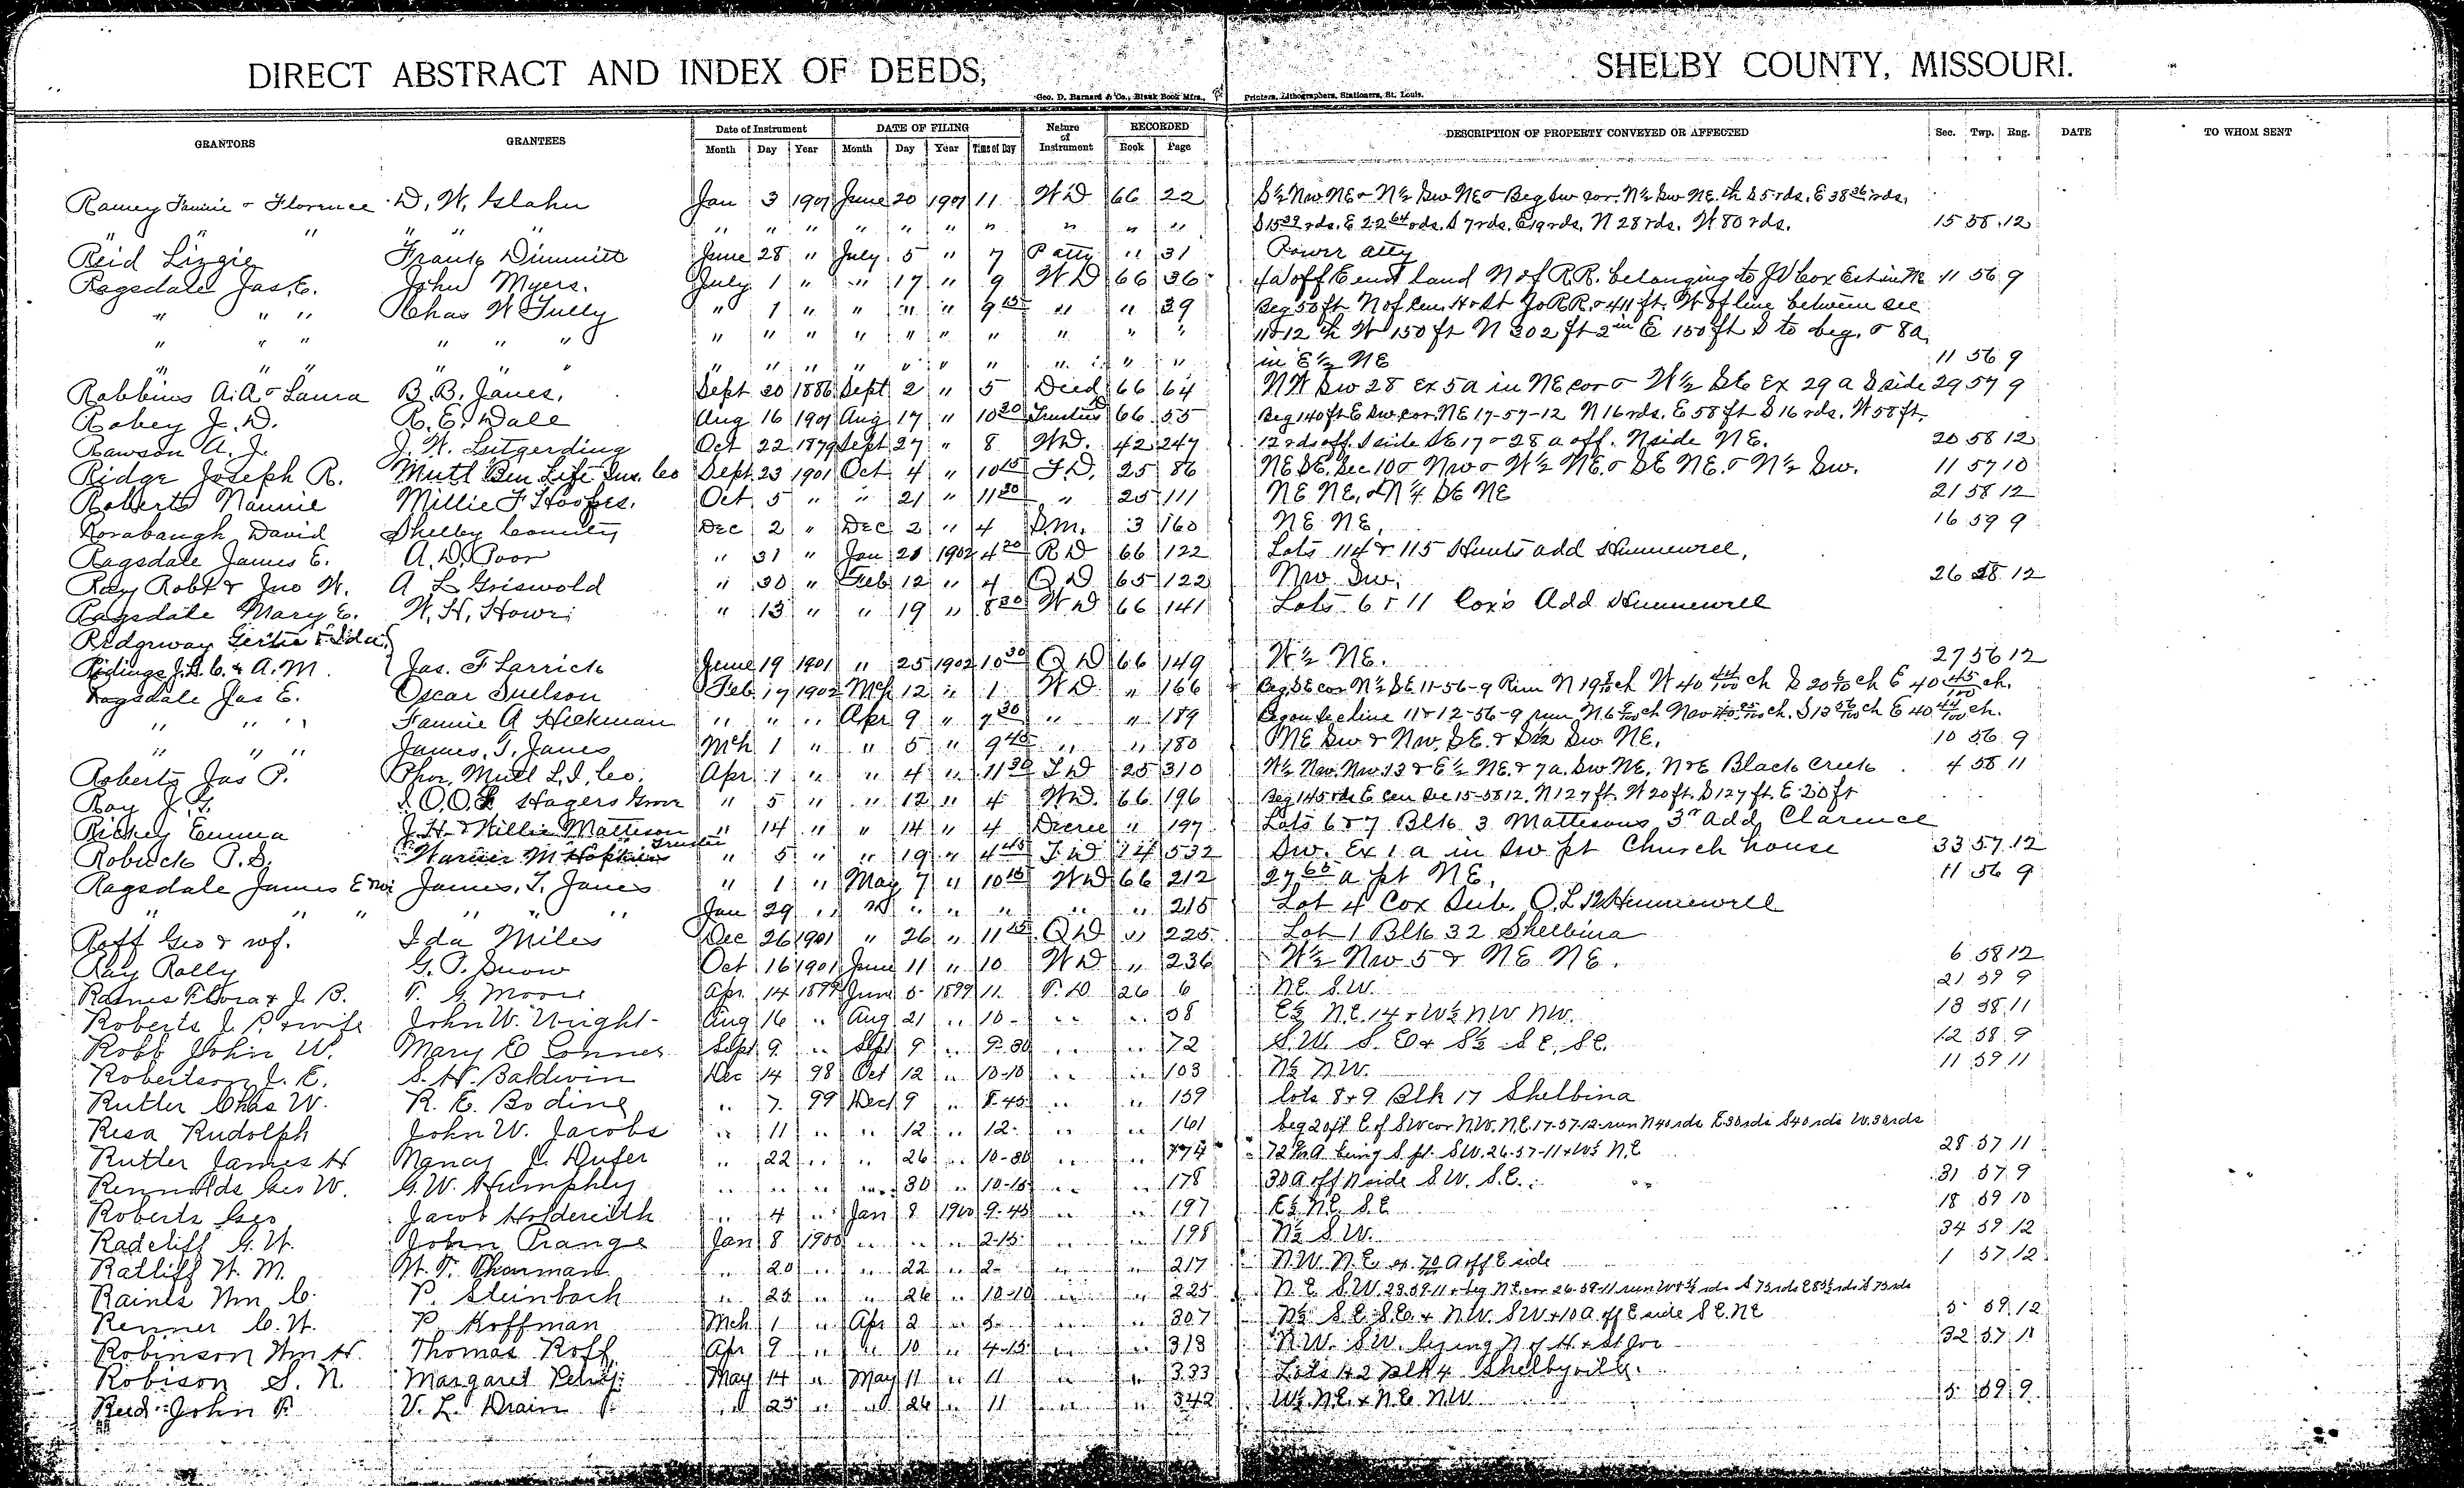 DIRECT ABSTRACT AND INDEX OF DEEDS, SHELBY COUNTY, MISSOURI.
Geo. D. Barnard & Co., Blank Book Mfrs., Printers, Lithographers, Stationers, St. Louis.
GRANTORS GRANTEES Date of Instrument DATE OF FILING Nature of Instrument RECORDED DESCRIPTION OF PROPERTY CONVEYED OR AFFECTED Sec. Twp. Rng. DATE TO WHOM SENT
Month Day Year Month Day Year Time of Day Book Page
Ramey Fannie & Florence D. W. Glahn Jan 3 1901 June 20 1901 11 WD 66 22 S½ NW NE & N½ SW NE & Beg SW cor. N½ SW NE. th S 5 rds. E 38 36 rds.
" " " " " " " " " " " " " " S 15 39 rds. E 22 64 rds. S 7 rds. E 19 rds. N 28 rds. W 80 rds. 15 58 12
Reid Lizzie Frank Dimmitt June 28 " July 5 " 7 P atty " 31 Power atty
Ragsdale Jas. E. John Myers. July 1 " " 17 " 9 WD 66 36 off E end land N of RR. belonging to Cox Est in NE 11 56 9
" " " Chas W Tully " 1 " " " " 9 15 " " 39 Beg 50 ft N of Cen. H & St Jo RR. & 411 ft. W of line between sec
" " " " " " " " " " " " " " " " 11 & 12 th W 150 ft N 302 ft 2 in E 150 ft S to beg. & 8a
" " " " " " " " " " " " " " in E½ NE 11 56 9
Robbins A. A. & Laura B. B. Janes. Sept 20 1886 Sept 2 " 5 Deed 66 64 NW SW 28 Ex 5a in NE cor & W½ SE Ex 29 a S side 29 57 9
Robey J. D. R. E. Dale Aug 16 1901 Aug 17 " 10 20 Trustees 66 55 Beg 140 ft E SW cor. NE 17-57-12 N 16 rds. E 58 ft S 16 rds. W 58 ft.
Rawson A. J. J. W. Lutgerding Oct 22 1879 Sept 27 " 8 WD. 42 247 12 rds off S side SE 17 & 28 a off. N side NE. 20 58 12
Ridge Joseph R. Mutl Ben Life Ins. Co Sept. 23 1901 Oct 4 " 10 15 T.D. 25 86 NE SE. Sec 10 & NW & W½ NE. & SE NE. & N½ SW. 11 57 10
Roberts Nannie Millie F Hoopes. Oct 5 " " 21 " 11 30 " 25 111 NE NE, & N¼ SE NE 21 58 12
Rorabaugh David Shelby County Dec 2 " Dec 2 " 4 S.M. 3 160 NE NE. 16 59 9
Ragsdale James E. A. D. Poor " 31 " Jan 21 1902 4 20 RD 66 122 Lots 114 & 115 Hunts add Hunnewell.
Ray Robt & Jno W. A L Griswold " 30 " Feb 12 " 4 QD 65 122 NW SW. 26 58 12
Ragsdale Mary E. W. H. Howe " 13 " " 19 " 8 30 WD 66 141 Lots 6 & 11 Cox's Add Hunnewell
Ridgway Gertie & Ida
Ridings J. L. C. & A. M. Jas. F Larrick June 19 1901 " 25 1902 10 30 QD 66 149 W½ NE. 27 56 12
Ragsdale Jas E. Oscar Suelson Feb 17 1902 Mch 12 " 1 WD " 166 Beg SE cor N½ SE 11-56-9 Run N 19 ch W 40 44/100 ch S 20 ch E 40 45/100 ch.
" " " Fannie A Hickman " " " Apr 9 " 7 30 " " 189 Beg on Sec line 11 & 12-56-9 run N 6 ch ch. S 13 56/100 ch E 40 44/100 ch.
" " " James. T. Janes Mch 1 " " 5 " 9 45 " " 180 NE SW & NW. SE. & S½ SW. NE. 10 56 9
Roberts Jas P. Phox. Mutl L. I. Co. Apr 1 " " 4 " 11 30 TD 25 310 W½ NW. NW. 13 & E½ NE. & 7 a. SW NE. N & E Black Creek 4 58 11
Ray J. T. I. O. O. F Hagers Grove " 5 " " 12 " 4 WD. 66 196 Beg 145 rds E Cen Sec 15-58 12. N 127 ft. W 20 ft. S 127 ft. E 20 ft
Richey Emma J. H. & Willie Matteson " 14 " " 14 " 4 Decree " 197 Lots 6 & 7 Blk 3 Mattesons 3rd Add Clarence
Robuck P. S. Warner M Hopkins Trustee " 5 " " 19 " 4 45 T.D 14 532 SW. Ex 1 a in SW pt Church house 33 57 12
Ragsdale James E & wi James. T. Janes " 1 " May 7 " 10 15 WD 66 212 27 60 a pt NE. 11 56 9
" " " " " " Jan 29 " " " " " " " 215 Lot 4 Cox Sub. O. L 12 Hunnewell
Roff Geo & wf. Ida Miles Dec 26 1901 " 26 " 11 25 QD " 225 Lot 1 Blk 32 Shelbina
Ray Rolly G. T. Snow Oct 16 1901 June 11 " 10 WD " 236 W½ NW 5 & NE NE. 6 58 12
Raines Flora & J. B. T. G Moore Apr. 14 1899 June 5 1899 11. T. D 26 6 NE S.W. 21 59 9
Roberts J. P. & wife John W. Wright Aug 16 " Aug 21 " 10 - " " 58 E½ N.E. 14 & W½ NW NW. 13 58 11
Robb John W. Mary E Conner Sept 9 " Sept 9 " 9-30 " " 72 S.W. S.E. & S½ S.E. S.E. 12 58 9
Robertson J. E. S. H. Baldwin Dec 14 98 Oct 12 " 10-10 " " 103 N½ N.W. 11 59 11
Rutler Chas W. R. E. Bodine " 7. 99 Dec 9 " 8.45 " " 159 lots 8 & 9 Blk 17 Shelbina
Resa Rudolph John W. Jacobs " 11 " " 12 " 12. " " 161 beg 20 ft E of SW cor N.W. N.E. 17-57-12 run N 40 rds E 30 rds S 40 rds W. 30 rds
Rutler James H Nancy J. Dufer " 22 " " 26 " 10-30 " " 174 A being S pt. S.W. 26-57-11 & W½ N.E 28 57 11
Rennolds Geo W. G. W. Humphley " " " " 30 " 10-15 " " 178 30 A off N side S.W. S.E. 31 57 9
Roberts Geo Jacob Holdereith " 4 " Jan 8 1900 9-45 " " 197 E½ N.E. S.E 18 59 10
Radcliff G. W. John Prange Jan 8 1900 " " " 2-15 " " 198 N½ S.W. 34 59 12
Ratliff W. M. W. T. Thurman " 20 " " 22 " 2- " " 217 N.W. N.E. ex. 70 A off E side 1 57 12
Raines Wm C. P. Steinbach " 25 " " 26 " 10-10 " " 225 N.E. S.W. 23.59-11 & beg N.E. cor 26-59-11 run W rds S 73 rds E 83½ rds N 73 rds
Renner C. W. P. Hoffman Mch 1 " Apr 2 " 5- " " 307 N½ S.E. S.E. & N.W. S.W & 10 a. off E side S.E. NE 5 59 12
Robinson Wm H. Thomas Roff Apr 9 " " 10 " 4-15 " " 313 N.W. S.W. lying N of H & St Joe 32 57 11
Robison S. N. Margaret May 14 " May 11 " 11 " " 333 Lots 1 & 2 Blk 4 Shelbyville.
Reid John P. V. L. Drain " 25 " " 26 " 11 " " 342 W½ N.E. & N.E. N.W 5 59 9